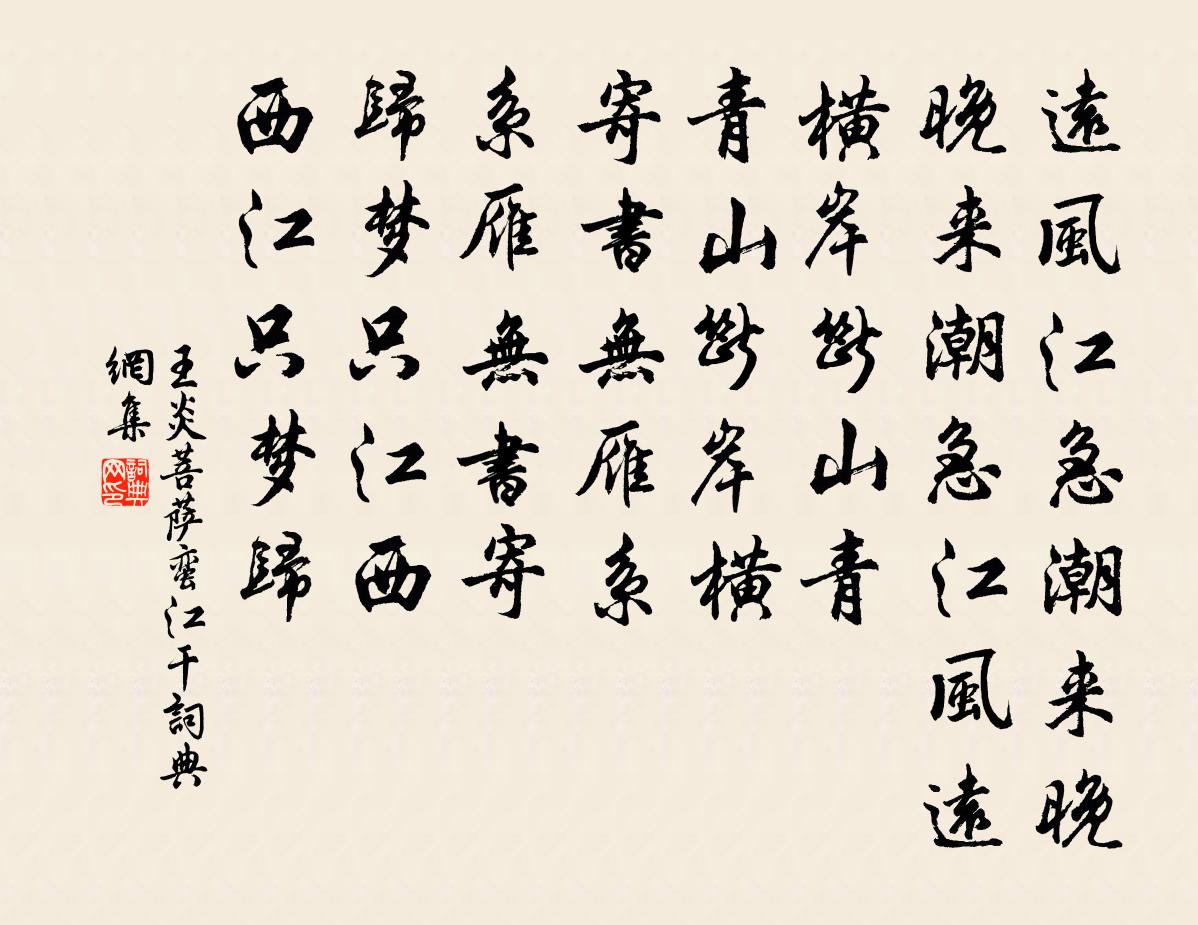 遠風江急潮来晚
晚来潮急江風遠
橫岸斷山青
青山斷岸橫
寄書無雁系
系雁無書寄
歸梦只江西
西江只梦歸
王炎菩薩蛮江干詞典
網集
詞典网印